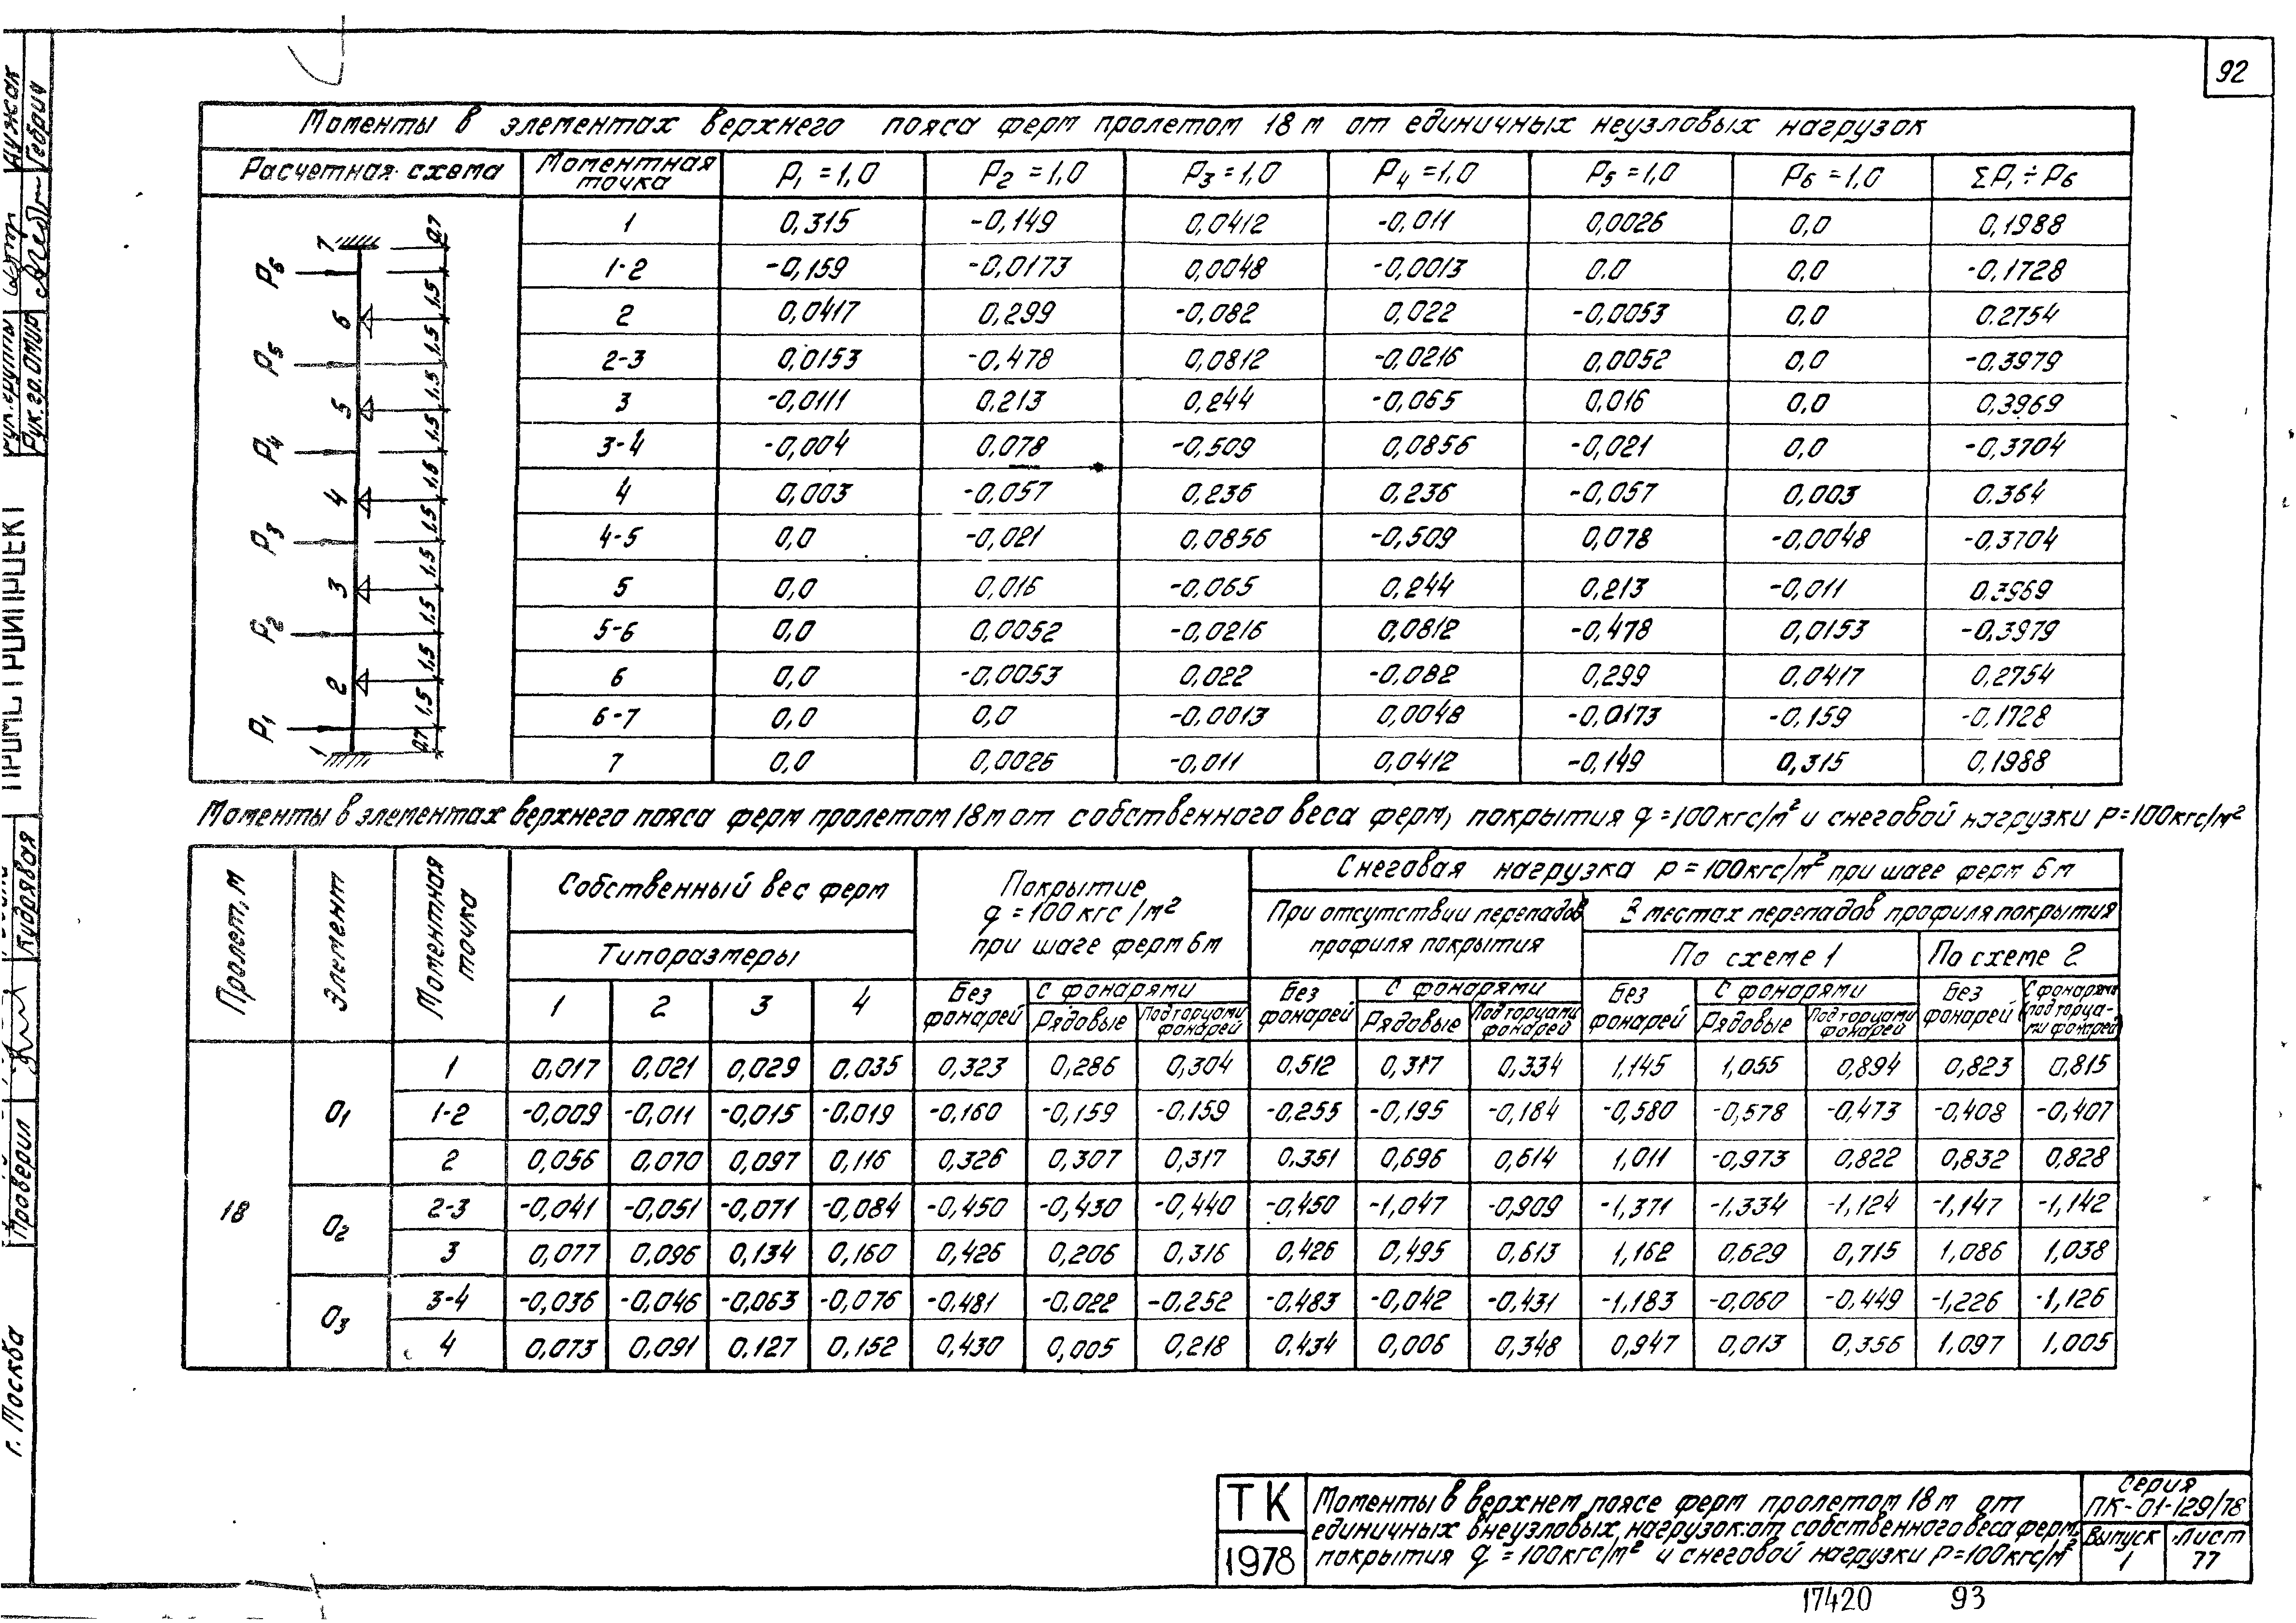 92
Моменты в элементах верхнего пояса ферм пролетом 18 м от единичных неузловых нагрузок
Расчетная схема | Моментная точка | P₁ = 1,0 | P₂ = 1,0 | P₃ = 1,0 | P₄ = 1,0 | P₅ = 1,0 | P₆ = 1,0 | ΣP₁ ÷ P₆
1 | 0,315 | -0,149 | 0,0412 | -0,011 | 0,0026 | 0,0 | 0,1988
1-2 | -0,159 | -0,0173 | 0,0048 | -0,0013 | 0.0 | 0,0 | -0,1728
2 | 0,0417 | 0,299 | -0,082 | 0,022 | -0,0053 | 0,0 | 0.2754
2-3 | 0,0153 | -0,478 | 0,0812 | -0,0216 | 0,0052 | 0,0 | -0,3979
3 | -0,0111 | 0.213 | 0,244 | -0,065 | 0,016 | 0,0 | 0,3969
3-4 | -0,004 | 0,078 | -0,509 | 0,0856 | -0,021 | 0,0 | -0,3704
4 | 0,003 | -0,057 | 0,236 | 0,236 | -0,057 | 0,003 | 0.364
4-5 | 0,0 | -0,021 | 0,0856 | -0,509 | 0,078 | -0,0048 | -0,3704
5 | 0,0 | 0,016 | -0,065 | 0,244 | 0,213 | -0,011 | 0.3969
5-6 | 0,0 | 0,0052 | -0,0216 | 0,0812 | -0,478 | 0,0153 | -0,3979
6 | 0,0 | -0,0053 | 0,022 | -0,082 | 0,299 | 0,0417 | 0,2754
6-7 | 0,0 | 0,0 | -0,0013 | 0,0048 | -0,0173 | -0,159 | -0,1728
7 | 0,0 | 0,0026 | -0,011 | 0,0412 | -0,149 | 0,315 | 0,1988
P₆ P₅ P₄ P₃ P₂ P₁
7 6 5 4 3 2 1
0,7 1,5 1,5 1,5 1,5 1,5 1,5 1,5 1,5 1,5 1,5 0,7
Моменты в элементах верхнего пояса ферм пролетом 18 м от собственного веса ферм, покрытия q = 100 кгс/м² и снеговой нагрузки p = 100 кгс/м²
Пролет, м | Элемент | Моментная точка | Собственный вес ферм | Покрытие q = 100 кгс/м² при шаге ферм 6 м | Снеговая нагрузка p = 100 кгс/м² при шаге ферм 6 м
При отсутствии перепадов профиля покрытия | В местах перепадов профиля покрытия
Типоразмеры | По схеме 1 | По схеме 2
1 | 2 | 3 | 4 | Без фонарей | С фонарями | Без фонарей | С фонарями | Без фонарей | С фонарями | Без фонарей | С фонарями (под торцами фонарей)
Рядовые | Под торцами фонарей | Рядовые | Под торцами фонарей | Рядовые | Под торцами фонарей
18 | O₁ | 1 | 0,017 | 0,021 | 0,029 | 0,035 | 0,323 | 0,286 | 0,304 | 0,512 | 0,317 | 0,334 | 1,145 | 1,055 | 0,894 | 0,823 | 0,815
1-2 | -0,009 | -0,011 | -0,015 | -0,019 | -0,160 | -0,159 | -0,159 | -0,255 | -0,195 | -0,184 | -0,580 | -0,578 | -0,473 | -0,408 | -0,407
2 | 0,056 | 0,070 | 0,097 | 0,116 | 0,326 | 0,307 | 0,317 | 0.351 | 0,696 | 0,614 | 1,011 | -0,973 | 0,822 | 0,832 | 0,828
O₂ | 2-3 | -0,041 | -0,051 | -0,071 | -0,084 | -0,450 | -0,430 | -0,440 | -0,450 | -1,047 | -0,909 | -1,371 | -1,334 | -1,124 | -1,147 | -1,142
3 | 0,077 | 0,096 | 0,134 | 0,160 | 0,426 | 0,206 | 0,316 | 0,426 | 0,495 | 0,613 | 1,162 | 0,629 | 0,715 | 1,086 | 1,038
O₃ | 3-4 | -0,036 | -0,046 | -0,063 | -0,076 | -0,481 | -0,022 | -0,252 | -0,483 | -0,042 | -0,431 | -1,183 | -0,060 | -0,449 | -1,226 | -1,126
4 | 0,073 | 0,091 | 0.127 | 0,152 | 0,430 | 0,005 | 0,218 | 0,434 | 0,006 | 0,348 | 0,947 | 0,013 | 0,356 | 1,097 | 1,005
ТК
1978
Моменты в верхнем поясе ферм пролетом 18 м от
единичных внеузловых нагрузок: от собственного веса ферм,
покрытия q = 100 кгс/м² и снеговой нагрузки p = 100 кгс/м²
Серия
ПК-01-129/78
Выпуск
1
Лист
77
17420 93
Рук. группы
Рук. гр. ОМИР
Нужак
Гебрич
ПРОМСТРОЙПРОЕКТ
Проверил
Кудрявая
г. Москва